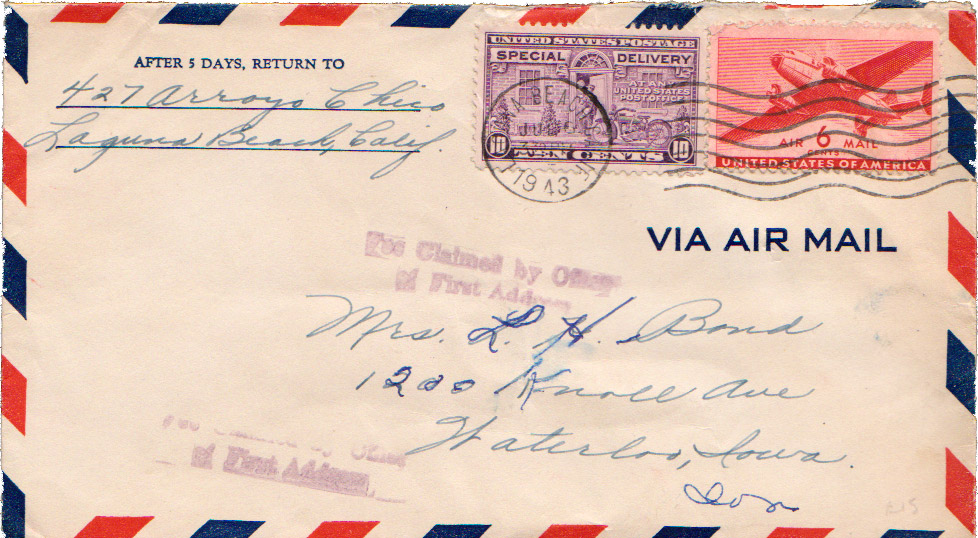 AFTER 5 DAYS, RETURN TO
427 Arroyo Chico
Laguna Beach, Calif.
UNITED STATES POSTAGE
SPECIAL DELIVERY
UNITED STATES
POST OFFICE
10 TEN CENTS 10
BEACH
1943
AIR 6 MAIL
CENTS
UNITED STATES OF AMERICA
VIA AIR MAIL
Fee Claimed by Office
of First Address
Mrs. L. H. Bond
1200 Knoll Ave
Waterloo, Iowa.
Fee Claimed by Office
of First Address